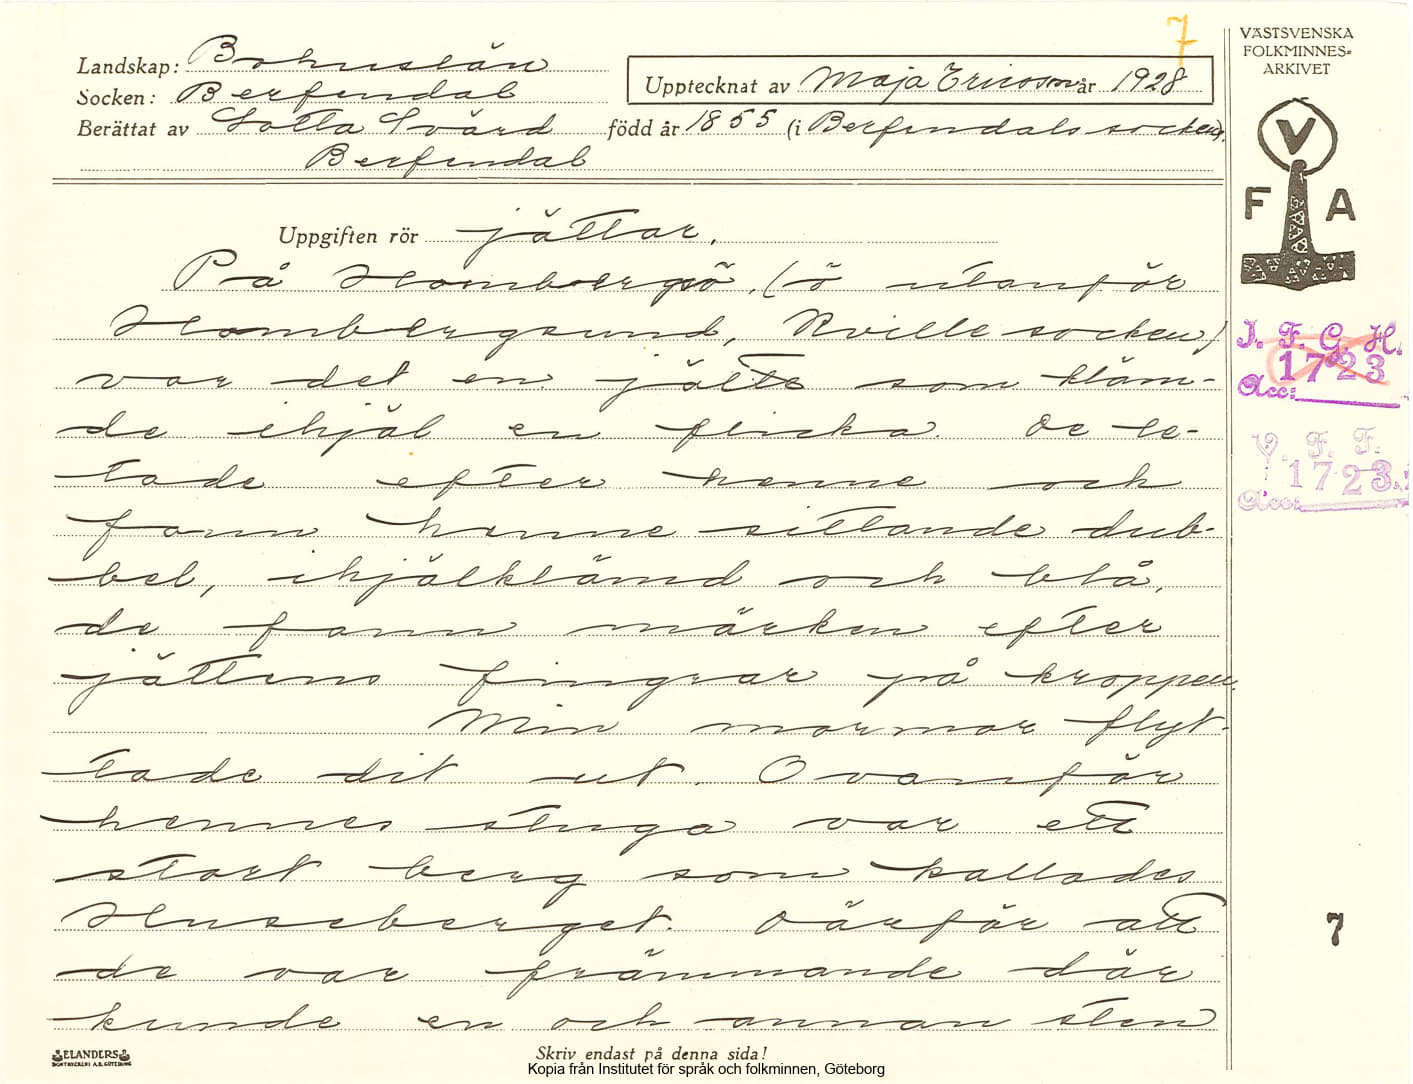 7
Landskap: Bohuslän
Socken: Berfendal
Upptecknat av Maja Ericson år 1928
Berättat av Lotta Svärd född år 1855 (i Berfendals socken).
Berfendal
VÄSTSVENSKA
FOLKMINNES-
ARKIVET
V
F A
Uppgiften rör jättar.
På Hornbergsö, (ö utanför
Hornbergsund, Kville socken)
var det en jätte som kläm-
de ihjäl en flicka. De le-
tade efter henne och
fann henne sittande dub-
bel, ihjälklämd och blå,
de fann märken efter
jättens fingrar på kroppen.
Min mormor flyt-
tade dit ut. Ovanför
hennes stuga var ett
stort berg som kallades
Huseberget. Därför att
de var främmande där
kunde en och annan sten
I. F. G. H.
1723
Acc:
V. F. F.
1723
Acc:
7
ELANDERS
BOKTRYCKERI A.B. GÖTEBORG
Skriv endast på denna sida!
Kopia från Institutet för språk och folkminnen, Göteborg